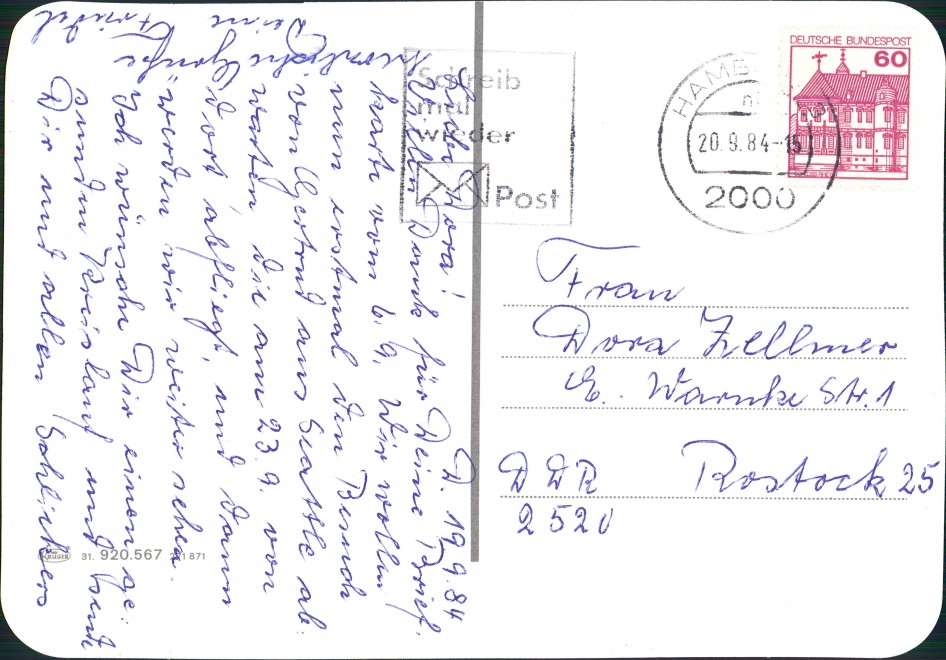 D. 19.9.84
Liebe Dora!
Vielen Dank für Deine Brief:
karte vom 6.9. Wir wollen
nun erstmal den Besuch
von Gertrud aus Seattle ab:
warten, die am 23.9. von
dort abfliegt, und dann
"werden wir weiter sehen
Ich wünsche Dir einen ge:
sunden Kreislauf und sende
Dir und allen
herzliche Grüße
Deine
Friedel
Schreib
mal
wieder
Post
HAMB
20.9.84-15
2000
DEUTSCHE BUNDESPOST
60
Frau
Dora Zellmer
E. Warnke Str. 1
DDR Rostock 25
2520
KRÜGER 31. 920.567 871